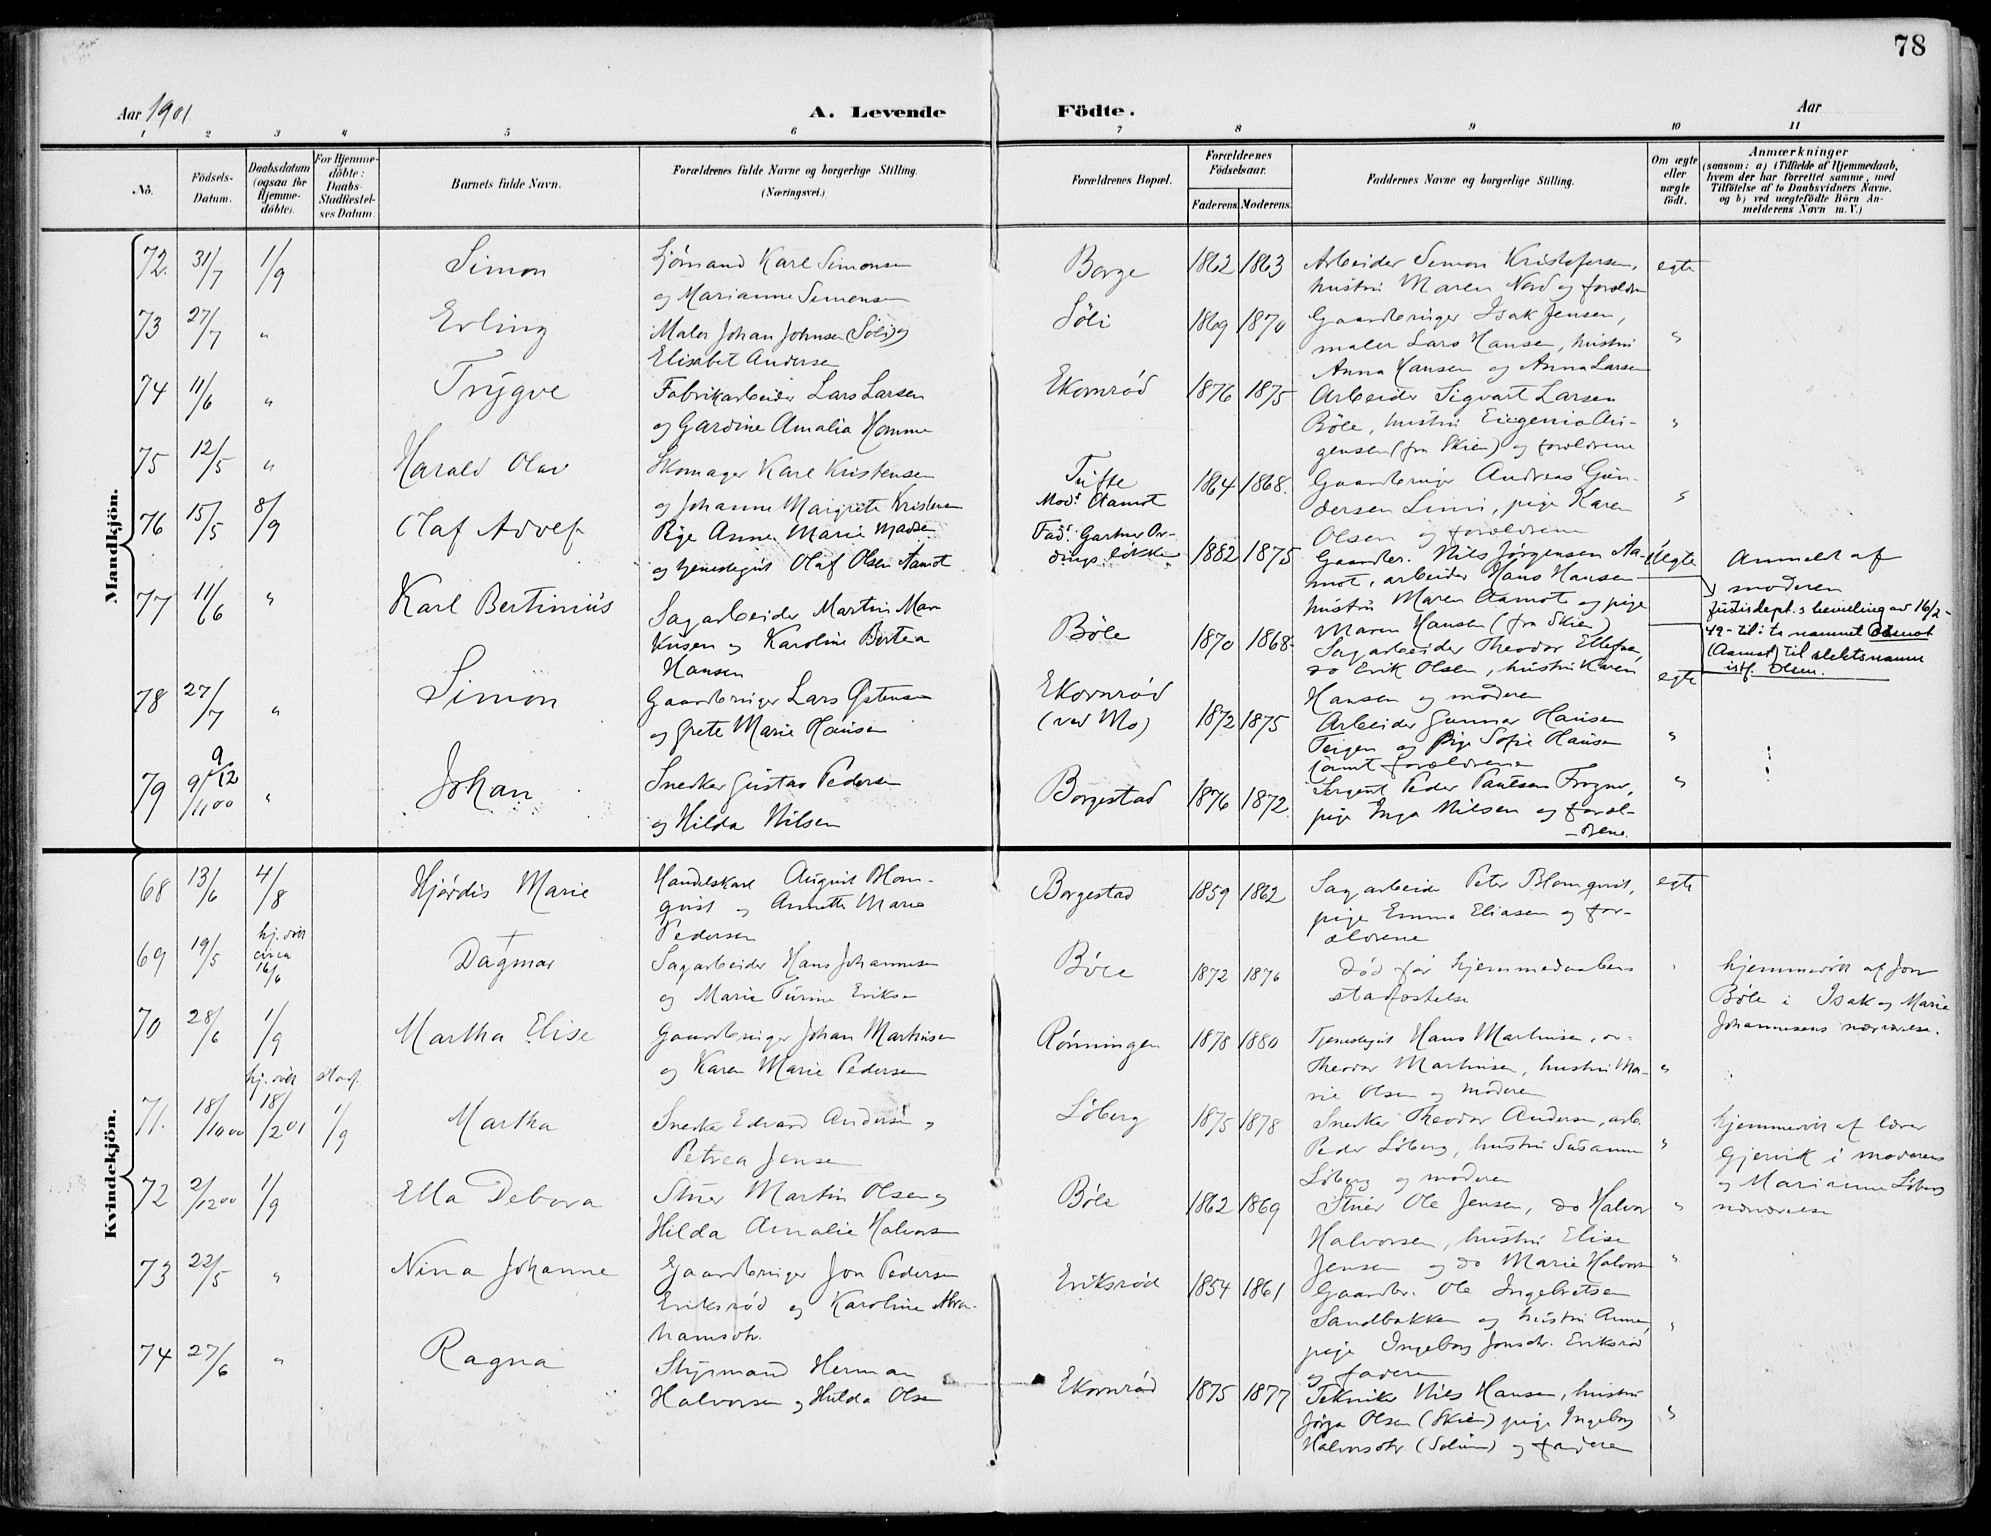 78
Aar 1901
A. Levende Födte.
Aar
1 2 3 4 5 6 7 8 9 10 11
No.
Födsels-Datum.
Daabsdatum (ogsaa for Hjemme-döbte).
For Hjemme-döbte: Daabs-Stadfæstel-ses Datum.
Barnets fulde Navn.
Forældrenes fulde Navne og borgerlige Stilling. (Næringsvei.)
Forældrenes Bopæl.
Forældrenes Födselsaar.
Faderens. Moderens.
Faddernes Navne og borgerlige Stilling.
Om ægte eller uægte födt.
Anmærkninger
(saasom: a) i Tilfælde af Hjemmedaab, hvem der har forrettet samme, med Tilföielse af to Daabsvidners Navne. og b) ved uægtefödte Börn An-melderens Navn m. V.)
Mandkjön.
72. 31/7 1/9 Simon
Sjømand Karl Simonsen
og Marianne Simensen
Borge 1862 1863
Arbeider Simon Kristofersen,
hustru Maren Nord og foreldre
egte
73 27/7 " Erling
Maler Johan Johnsen (Søli) og
Elisabet Andersen
Søli 1869 1870
Gaardbruger Isak Jensen,
maler Lars Hansen, hustru
Anna Hansen og Anna Larsen
"
74 11/6 " Trygve
Fabrikarbeider Lars Larsen
og Gardine Amalia Homme
Ekornrød 1876 1875
Arbeider Sigvart Larsen
Bøle, hustru Eugenia Au-
gensen (fra Skien) og forældrene
"
75 12/5 " Harald Olav
Skomager Karl Kristensen
og Johanne Margrete Kristensen
Tufte 1864 1868.
Gaardbruger Andreas Gun-
dersen Limi, pige Karen
Olsen og forældrene
"
76 15/5 8/9 Olaf Adolf
Pige Anne Marie Madsen
og tjenestegut Olaf Olsen Aamot
Mod: Aamot
Fad: Gartner Or-
dings løkken
1882 1875
Gaardbr. Nils Jørgensen Aa-
mot, arbeider Hans Hansen
hustru Maren Aamot og pige
Maren Hansen (fra Skien)
Uegte
Anmeldt af
moderen
Justisdept.s bevilling av 16/2-
49 - til: ta namnet Aamot
(Aamot) til slektsnamn
istf. Olsen.
77 11/6 " Karl Bertinius
Sagarbeider Martin Mar
kusen og Karoline Bertea
Hansen
Bøle 1870 1868
Sagarbeider Theodor Ellefsen,
do Erik Olsen, hustru Karen
Hansen og moderen
egte
78 27/7 " Simon
Gaardbruger Lars Østensen
og Grete Marie Hansen
Ekornrød
(ved Mo)
1872 1875
Arbeider Gunnar Hansen
Teigen og Pige Sofie Hansen
samt forældrene
"
79 9/12 9/11 00 " Johan
Snedker Gustav Pedersen
og Hilda Nilsen
Borgestad 1876 1872
Sergent Peder Paulsen Frogner,
pige Inga Nilsen og foræl-
drene.
"
Kvindekjön.
68 13/6 4/8 Hjördis Marie
Handelskarl August Blom-
qvist og Annette Marie
Pedersen
Borgestad 1859 1862
Sagarbeider Peter Blomqvist,
pige Emma Eliasen og for-
ældrene
egte
69 19/5 hj. døbt circa 16/6 † Dagmar
Sagarbeider Hans Johannesen
og Marie Turine Eriksen
Bøle 1872 1876
død før hjemmedaabens
stadfæstelse
"
hjemmedøbt af Jon
Bøle i Isak og Marie
Johannesens nærværelse.
70 28/6 1/9 Martha Elise
Gaardbruger Johan Martinsen
og Karen Marie Pedersen
Rønningen 1878 1880
Tjenestegut Hans Martinsen, do
Theodor Martinsen, hustru Ma-
rie Olsen og moderen
"
71. 18/10 00 hj. døbt 18/2 01 stadf. 1/9 Martha
Snedker Edvard Andersen og
Petrea Jensen
Løberg 1875 1878
Snedker Theodor Andersen, arb.
Peder Løberg, hustru Susanne
Løberg og moderen
"
hjemmedøbt af lærer
Gjervik i moderens
og Marianne Løbergs
nærværelse
72 2/12 00 1/9 Ella Debora
Stuer Martin Olsen og
Hilda Amalie Halvorsen
Bøle 1862 1869
Stuer Ole Jensen, do Halvor
Halvorsen, hustru Elise
Jensen og do Marie Halvorsen
"
73 22/5 " Nina Johanne
Gaardbruger Jon Pedersen
Eriksrød og Karoline Abra-
hamsdtr.
Eriksrød 1854 1861
Gaardbr. Ole Ingebretsen
Sandbakken og hustru Anne,
pige Ingeborg Jonsdtr. Eriksrød
og faderen
"
74 27/6 " Ragna
Styrmand Herman
Halvorsen og Hilda Olsen
Ekornrød 1875 1877
Tekniker Nils Hansen, hustru
Jørga Olsen (Skien) pige Ingeborg
Halvorsdtr (Solum) og faderen
"